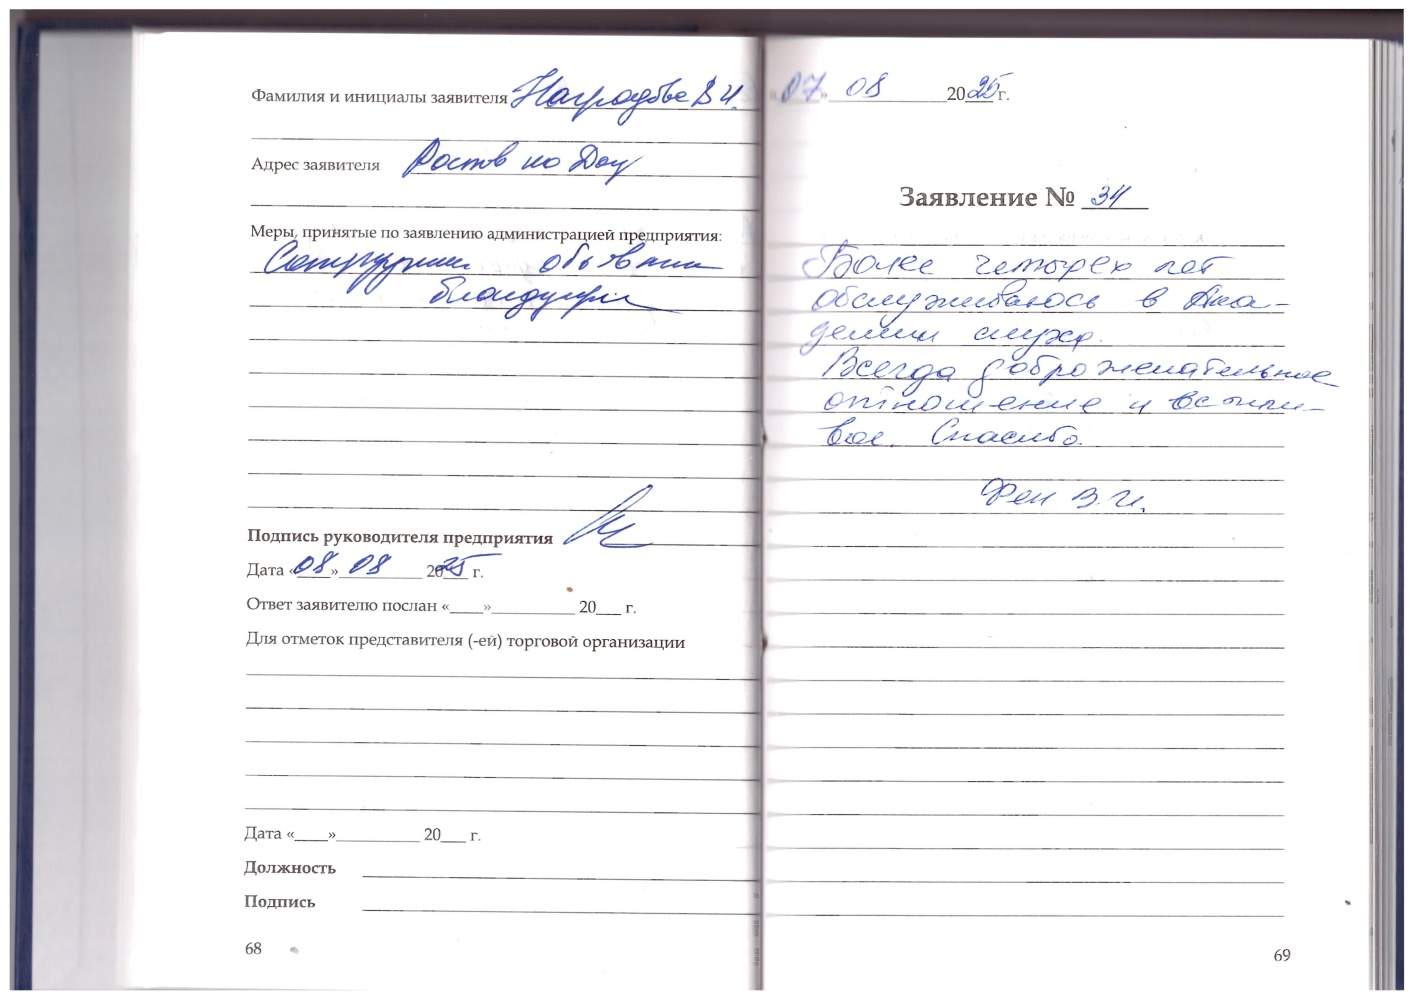 Фамилия и инициалы заявителя В И.
Адрес заявителя Ростов на Дону
Меры, принятые по заявлению администрацией предприятия:
объявлена
благодарность
Подпись руководителя предприятия
Дата «08» 08 2025 г.
Ответ заявителю послан «____»__________ 20___ г.
Для отметок представителя (-ей) торговой организации
Дата «____»__________ 20___ г.
Должность
Подпись
68
«07» 08 2025 г.
Заявление № 34
Более четырех лет
обслуживаюсь в Ака-
демии слуха.
Всегда доброжелательное
отношение и
Спасибо.
Фен В.И.
69